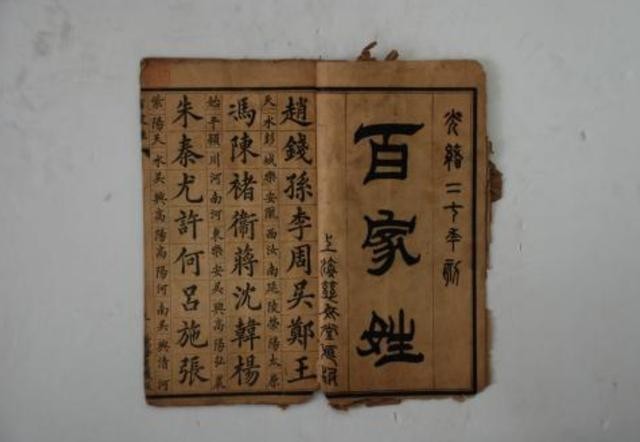 光緒二十年刻
百家姓
上海
趙錢孫李周吳鄭王
天水彭城樂安隴西汝南延陵滎陽太原
馮陳褚衛蔣沈韓楊
始平潁川河南河東樂安吳興高陽弘農
朱秦尤許何呂施張
紫陽天水吳興高陽高陽河南吳興清河